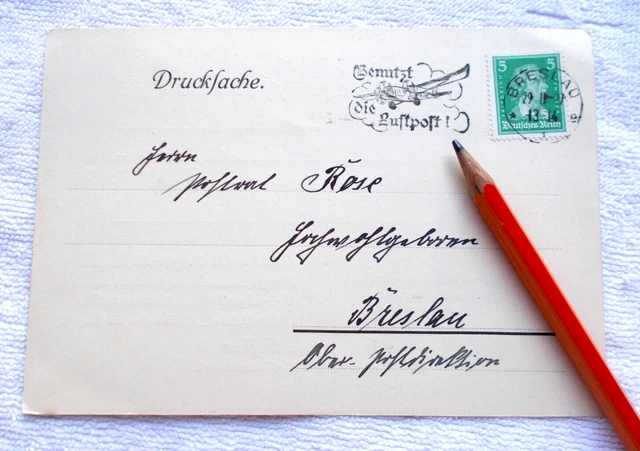 Drucksache.
Benutzt
die
Luftpost!
5 5
BRESLAU
13-14
e
Deutsches Reich
Herrn
Postrat Rose
Hochwohlgeboren
Breslau
Ober-Postdirektion